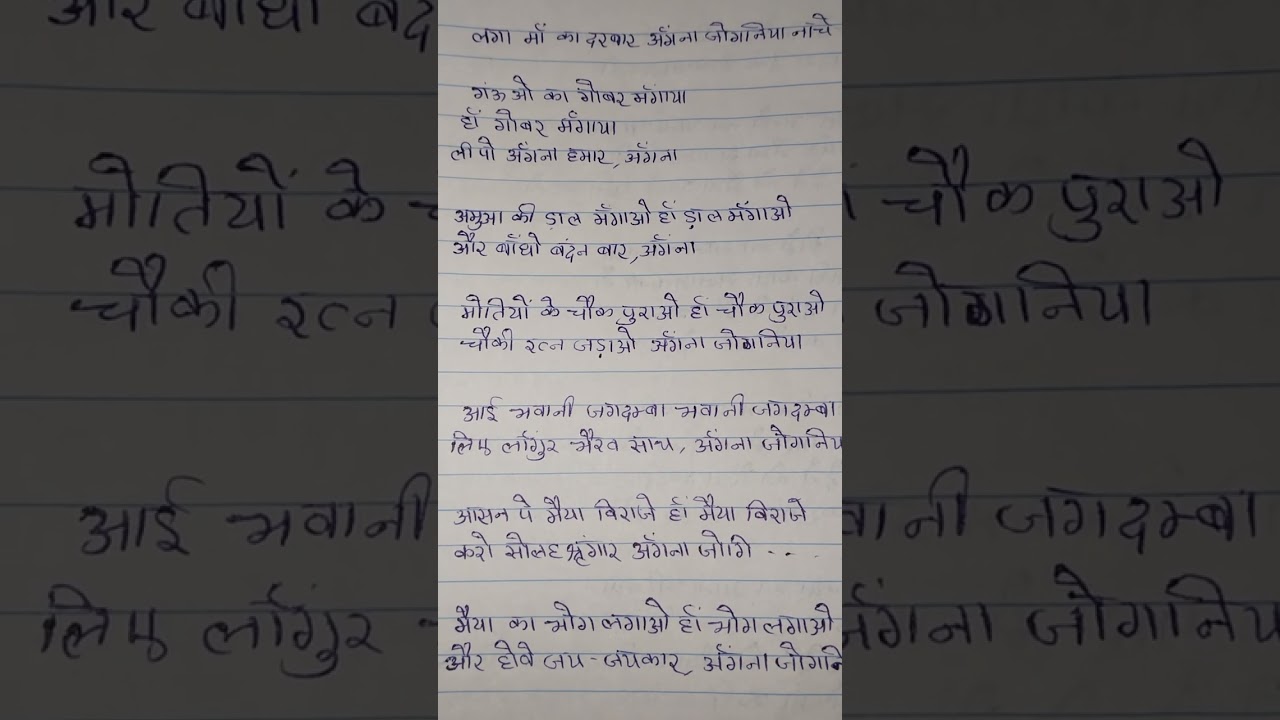 लगा माँ का दरबार अँगना जोगनिया नाचे
गंऊ ओ का गोबर मँगाया
हाँ गोबर मँगाया
लीपो अँगना हमार, अँगना
अमुआ की ड़ाल मँगाओ हाँ ड़ाल मँगाओ
और बाँधो बंदन बार, अँगना
मोतियों के चौक पुराओ हाँ चौक पुराओ
चौकी रत्न जड़ाओ अँगना जोगनिया
आई भवानी जगदम्बा भवानी जगदम्बा
लिए लाँगुर भैरव साथ, अँगना जोगनिय
आसन पे मैया विराजे हाँ मैया विराजे
करो सोलह श्रृंगार अँगना जोगि ....
मैया का भोग लगाओ हाँ भोग लगाओ
और होवे जय-जयकार, अँगना जोगनि